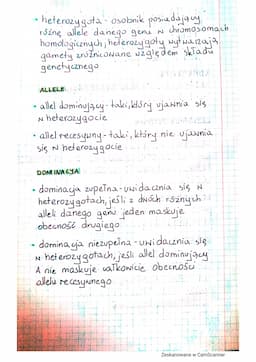 • heterozygota - osobnik posiadający
różne allele danego genu w chromosomach
homologicznych; heterozygoty wytwarzają
gamety zróżnicowane względem składu
genetycznego
ALLELE
• allel dominujący - taki, który ujawnia się
w heterozygocie
• allel recesywny - taki, który nie ujawnia
się w heterozygocie
DOMINACJA
• dominacja zupełna - uwidacznia się w
heterozygotach, jeśli z dwóch różnych
alleli danego genu jeden maskuje
obecność drugiego
• dominacja niezupełna - uwidacznia się
w heterozygotach, jeśli allel dominujący
A nie maskuje całkowicie obecności
allelu recesywnego
Zeskanowane w CamScanner